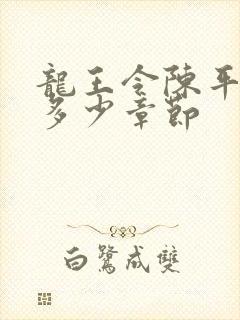 龍王令陳平
多少章節
白鷺成雙